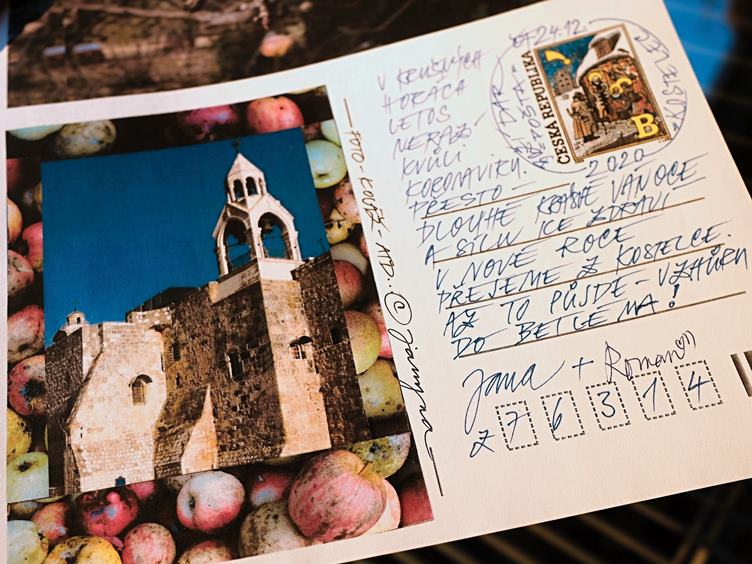 V KRUŠNÝCH
HORÁCH
LETOS
NERAZÍ
KVŮLI
KORONAVIRU.
24.12.
2020
ČESKÁ REPUBLIKA
B
PŘESTO
DLOUHÉ KRÁSNÉ VÁNOCE
A SÍLU KE ZDRAVÍ
V NOVÉ ROCE
PŘEJEME Z KOSTELCE.
AŽ TO PŮJDE - VZHŮRU
DO BETLÉMA!
Jana + Roman
Z 76314
FOTO - KOLÁŽ - ATD. ©